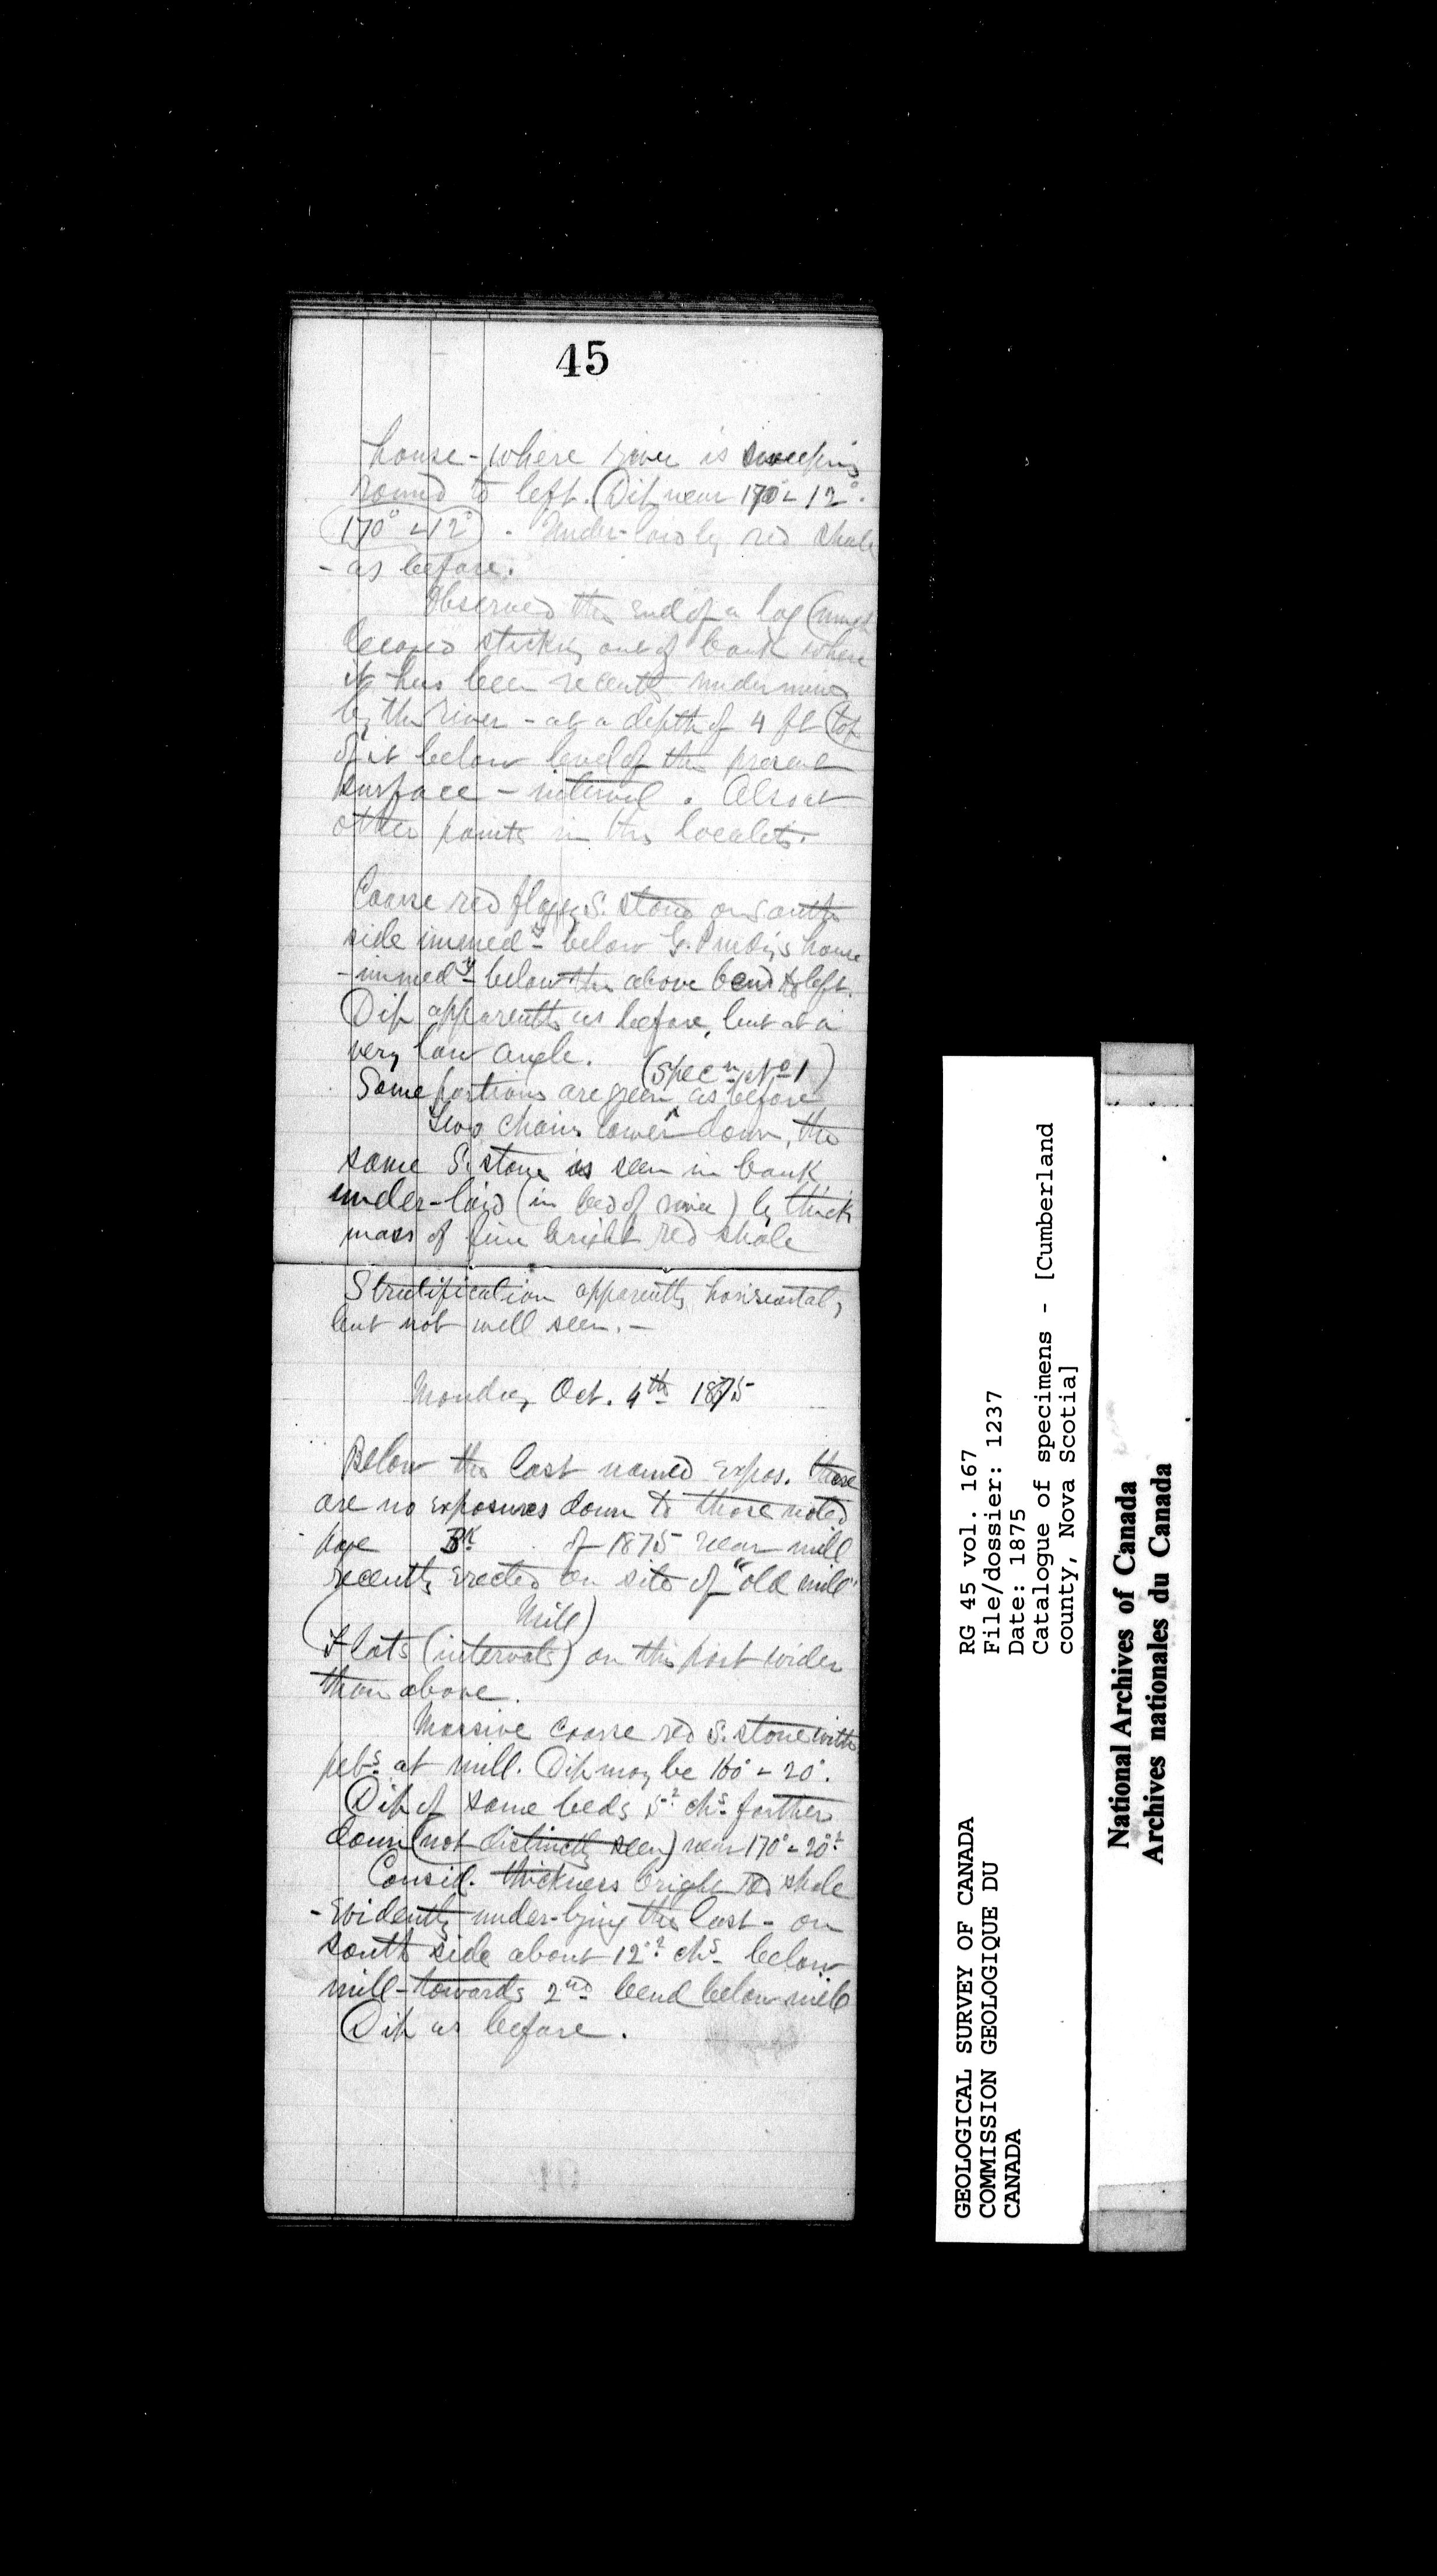 45
house - where river is sweeping
round to left. (Dip near 170° ∠ 12°.
(170° ∠ 12°) . Under-laid by red shale
- as before.
Observed the end of a log (much
decayed sticking out of bank where
it has been recently undermined
by the river - at a depth of 4 ft (top
of it below level of the present
surface - interval . Also at
other points in this locality.
Coarse red flaggy S. stone on South
side immedy below G. Purdy's house
- immedy below the above bend to left.
Dip apparently as before, but at a
very low angle. (Specn No 1)
Some portions are green as before
Two chains lower down, the
same S. stone is seen in bank
under-laid (in bed of river) by thick
mass of fine bright red shale
Stratification apparently horizontal,
but not well seen. -
Monday Oct. 4th 1875
Below the last named expos. there
are no exposures down to those noted
page Bk of 1875 near mill
recently erected on site of "old mill"
( Mill)
Flats (intervals) on this part wider
than above.
Massive coarse red S. stone with
pebs at mill. Dip may be 160° ∠ 20°.
Dip of same beds 5? chs farther
down (not distinctly seen) near 170° ∠ 20°?
Consid. thickness bright red shale
- Evidently under-lying the last - on
south side about 12? chs below
mill - towards 2nd bend below mill
Dip as before.
GEOLOGICAL SURVEY OF CANADA
COMMISSION GEOLOGIQUE DU
CANADA
RG 45 vol. 167
File/dossier: 1237
Date: 1875
Catalogue of specimens - [Cumberland
county, Nova Scotia]
National Archives of Canada
Archives nationales du Canada